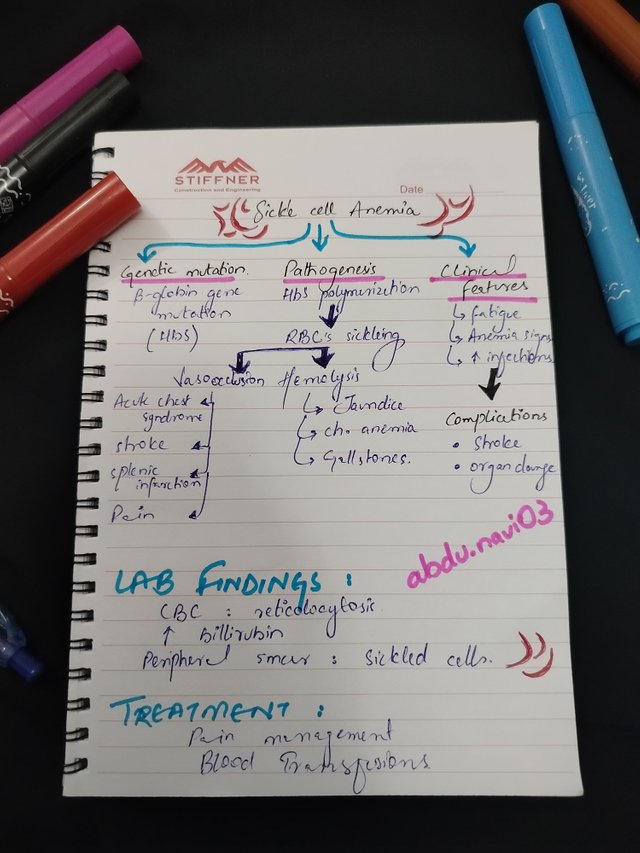 STIFFNER
Construction and Engineering
Date
Sickle cell Anemia
Genetic mutation.
β-globin gene
mutation
(HbS)
Pathogenesis
HbS polymerization
RBC's sickling
Vasoocclusion
Acute chest
syndrome
stroke
splenic
infarction
Pain
Hemolysis
Jaundice
chr anemia
Gallstones.
Clinical
features
fatigue
Anemia signs
↑ infections
Complications
• Stroke
• organ damge
abdu.navi03
LAB FINDINGS :
CBC : reticolocytosis
↑ billirubin
Peripheral smear : sickled cells.
TREATMENT :
Pain management
Blood Transfusions